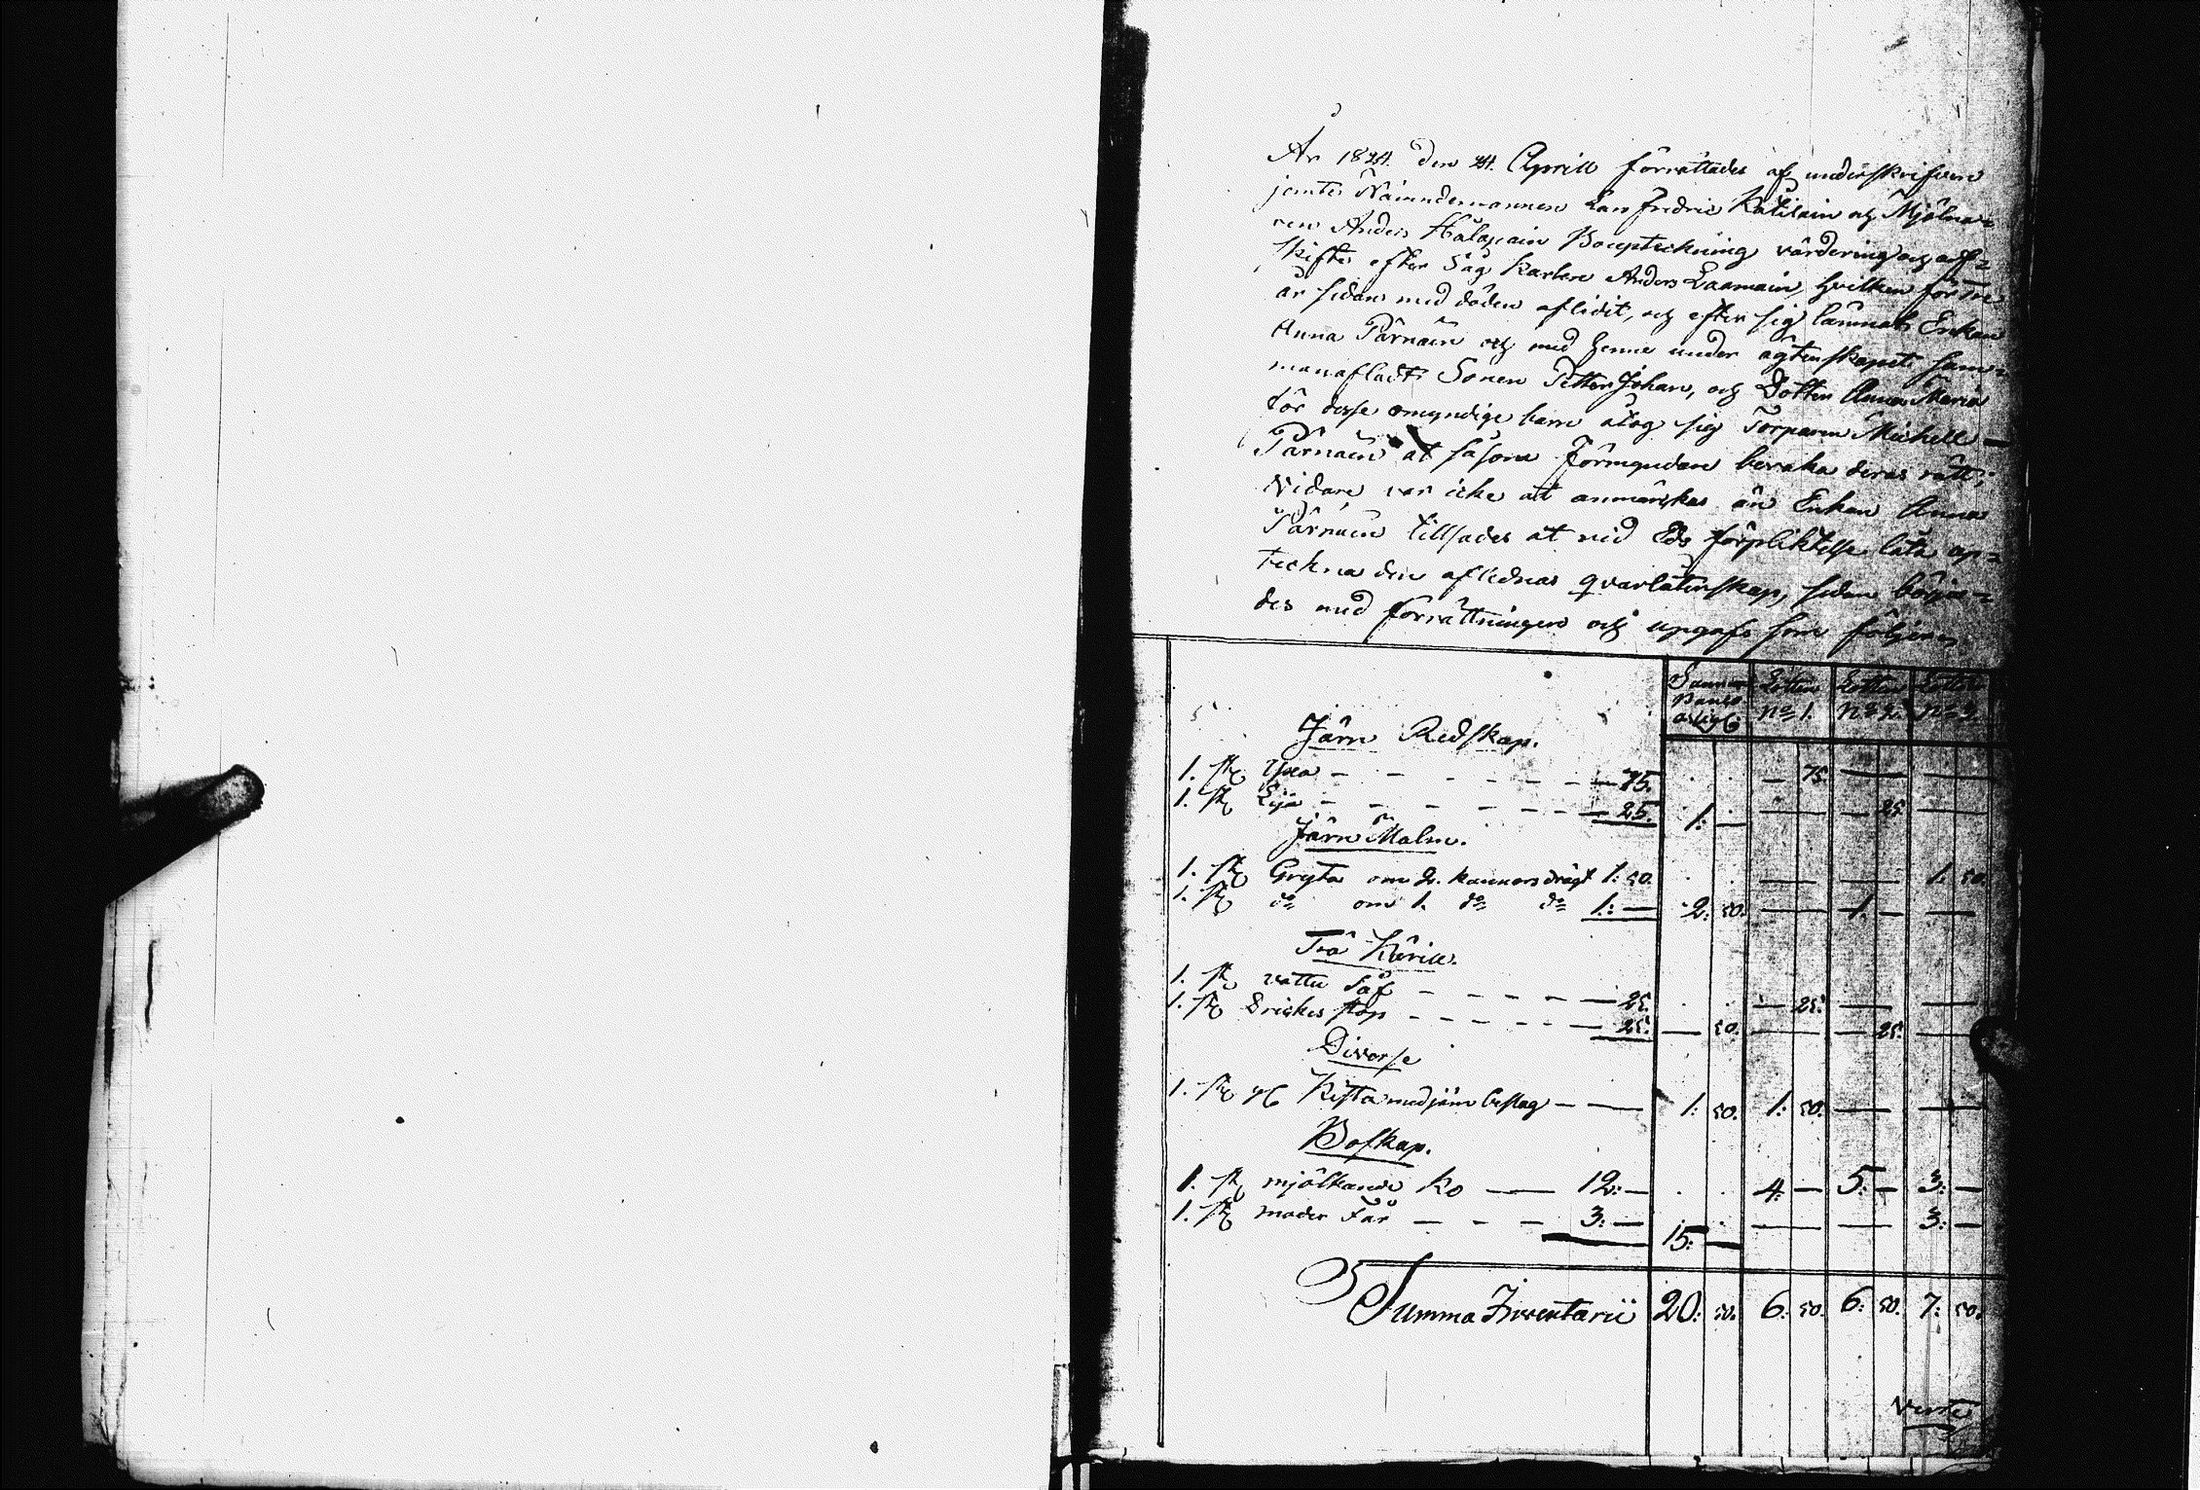 År 1824. den 24. Aprill förrättades af underskrifven
jemte Nämndemannen Lars Fredric Katilain och Mjölna=
ren Anders Halapain Bouptekning värdering och arf=
skifte efter Såg Karlen Anders Laamain, hvilken för Tre
år sedan med döden aflidit, och efter sig lämnat Enkan
Anna Pärnäin och med henne under ägtenskapet sam=
manaflade Sonen Petter Johan, och Dottren Anna Maria
för desse omyndige barn åtog sig Torparen Michell
Pärnäin at såsom Förmyndare bevaka deras rätt;
Vidare var icke at anmärkas än Enkan Anna
Pärnäin tillsades at vid Eds förpliktelse låta up=
tekna den aflednas qvarlåtenskap, sedan börja=
des med förrättningen och upgafs som följer
Lotten N:o 1. Lotten N:o 2. Lotten N:o 3.
Järn Redskap.
1. st. Yxa — 75. — 75. — —
1. st. Lija — 25. 1: — — — 25. —
Järn Malm.
1. st. Gryta om 2. kannors drägt 1: 50. — — 1: 50.
1. st. d:o om 1. d:o d:o 1: — 2: 50. — 1. — —
Trä Kärill.
1. st. vattu Såf — 25. — 25. — —
1. st. Drickes stop — 25. — 50. — — 25. —
Diverse
1. st. Kista med järn beslag — 1: 50. 1: 50. — —
Boskap.
1. st. mjölkande Ko — 12: — 4: — 5: — 3: —
1. st. moder Får — 3: — 15: — — — 3: —
Summa Inventarii 20: 50. 6: 50. 6: 50. 7: 50.
Verte